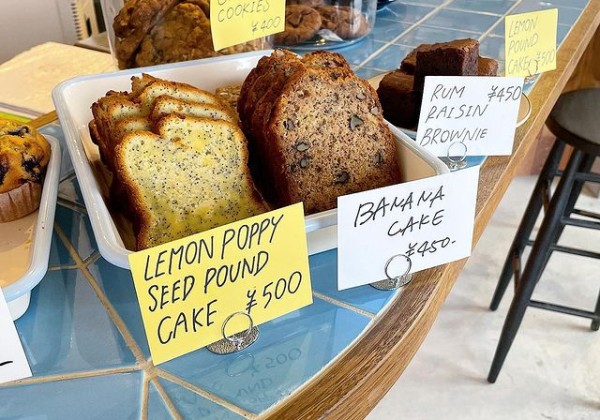 COOKIES
¥400
LEMON
POUND
CAKE ¥500
RUM ¥450
RAISIN
BROWNIE
BANANA
CAKE
¥450-
LEMON POPPY
SEED POUND
CAKE ¥500